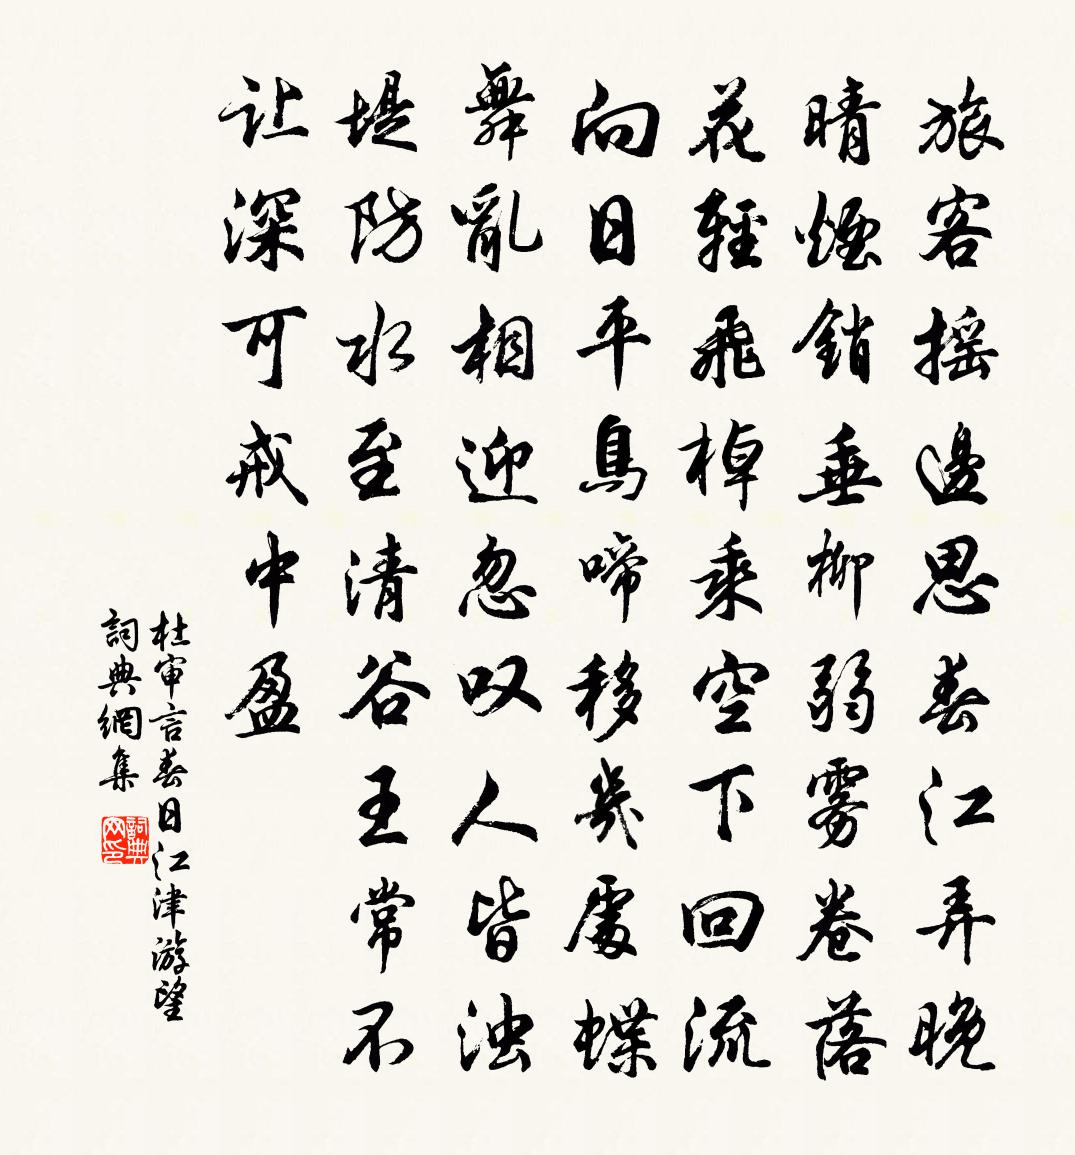 旅客摇邊思春江弄晚
晴煙銷垂柳弱雾卷落
花輕飛棹乘空下回流
向日平鳥啼移幾處蝶
舞亂相迎忽叹人皆浊
堤防水至清谷王常不
让深可戒中盈
杜审言春日江津游望
詞典網集
詞典网印